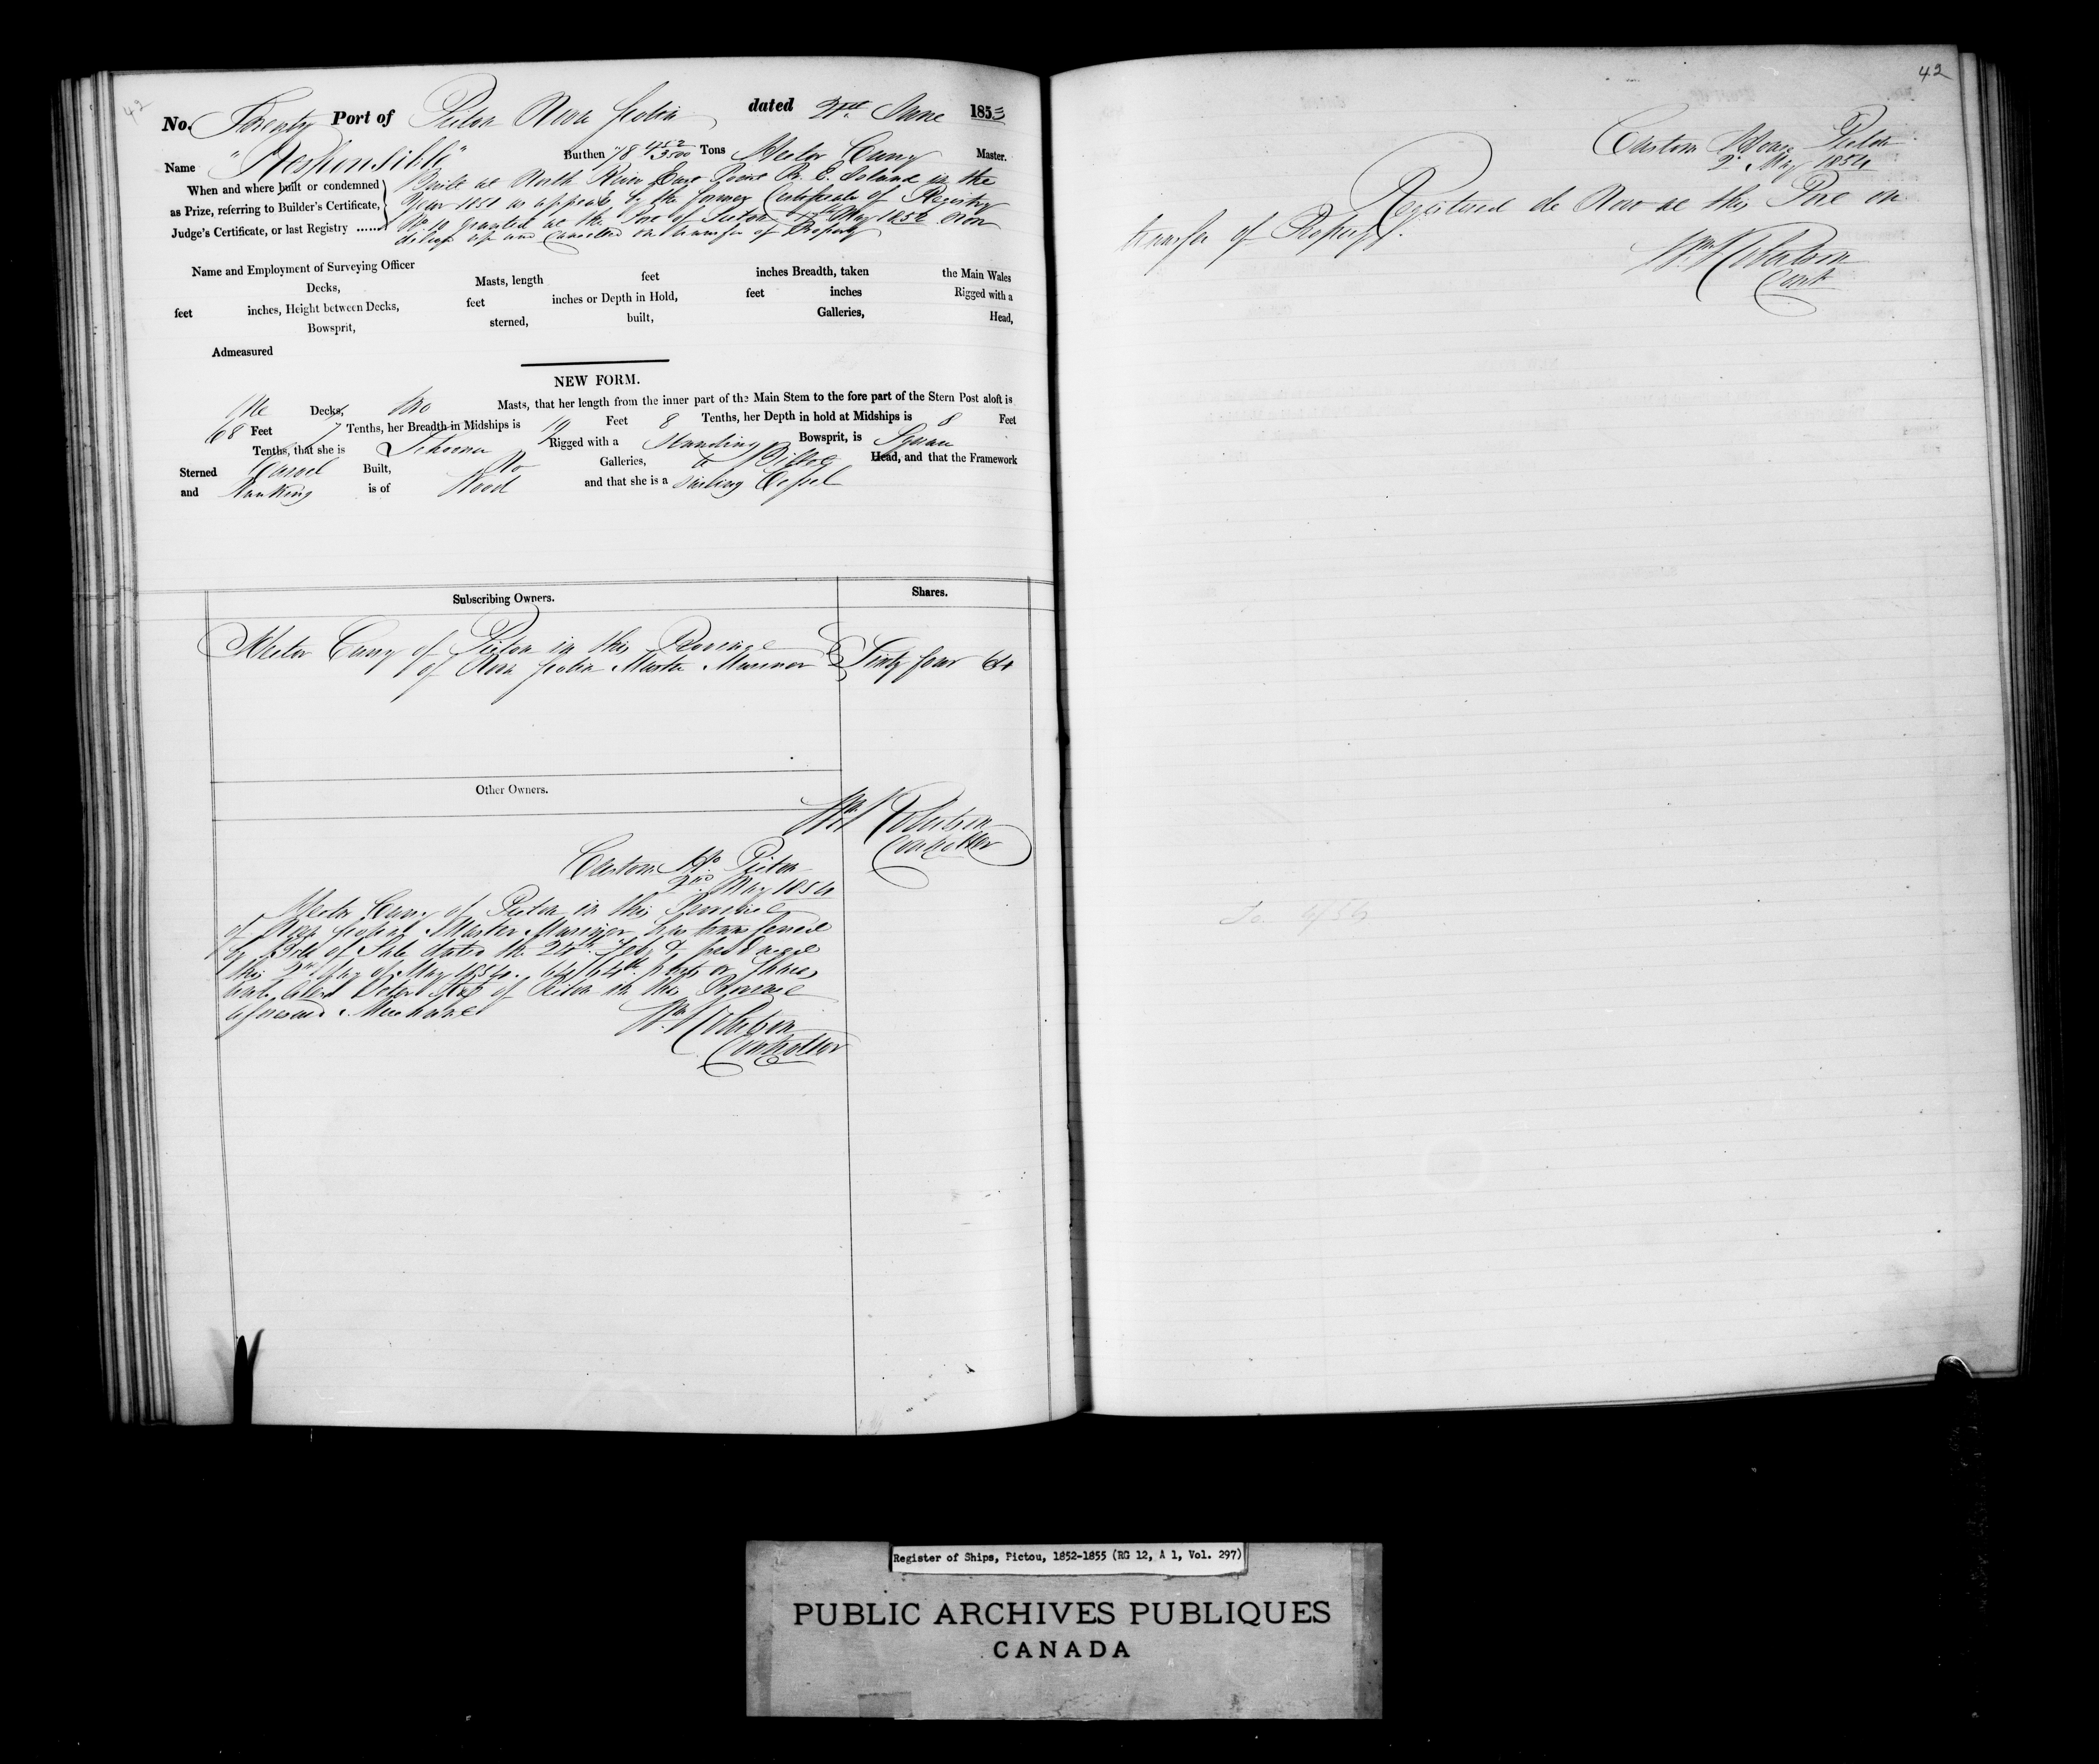 42
No. Twenty Port of Pictou Nova Scotia dated 21st June 1853
Name "Responsible" Burthen 78 452/3500 Tons Hector Curry Master.
When and where built or condemned
as Prize, referring to Builder's Certificate,
Judge's Certificate, or last Registry ......
Built at North River P. E. Island in the
Year 1851 as appears by the former Certificate of Registry
No. 10 granted at the Port of Pictou May 1852 now
deliv'd up and Cancelled on transfer of Property
Name and Employment of Surveying Officer
Decks, Masts, length feet inches Breadth, taken the Main Wales
feet inches, Height between Decks, feet inches or Depth in Hold, feet inches Rigged with a
Bowsprit, sterned, built, Galleries, Head,
Admeasured
NEW FORM.
One Decks, two Masts, that her length from the inner part of the Main Stem to the fore part of the Stern Post aloft is
68 Feet 7 Tenths, her Breadth in Midships is 19 Feet 8 Tenths, her Depth in hold at Midships is 8 Feet
Tenths, that she is Schooner Rigged with a Standing Bowsprit, is Square
Sterned Carvel Built, No Galleries, Billet Head, and that the Framework
and Planking is of Wood and that she is a Sailing Vessel
Subscribing Owners. Shares.
Hector Curry of Pictou in the Province
of Nova Scotia Master Mariner Sixty four 64
Other Owners.
Wm Robertson
Controller
Custom Ho. Pictou
2nd May 1854
Hector Curry of Pictou in the Province
of Nova Scotia Master Mariner has transferred
by Bill of Sale dated the 24th Feby & produced
this 2nd day of May 1854. 64/64th parts or Shares
Peter of Pictou in the Province
aforesaid Merchant
Wm Robertson
Controller
42
Custom House Pictou
2d May 1854
Registered de Novo at this Port on
transfer of Property.
Wm Robertson
Cont
Register of Ships, Pictou, 1852-1855 (RG 12, A 1, Vol. 297)
PUBLIC ARCHIVES PUBLIQUES
CANADA